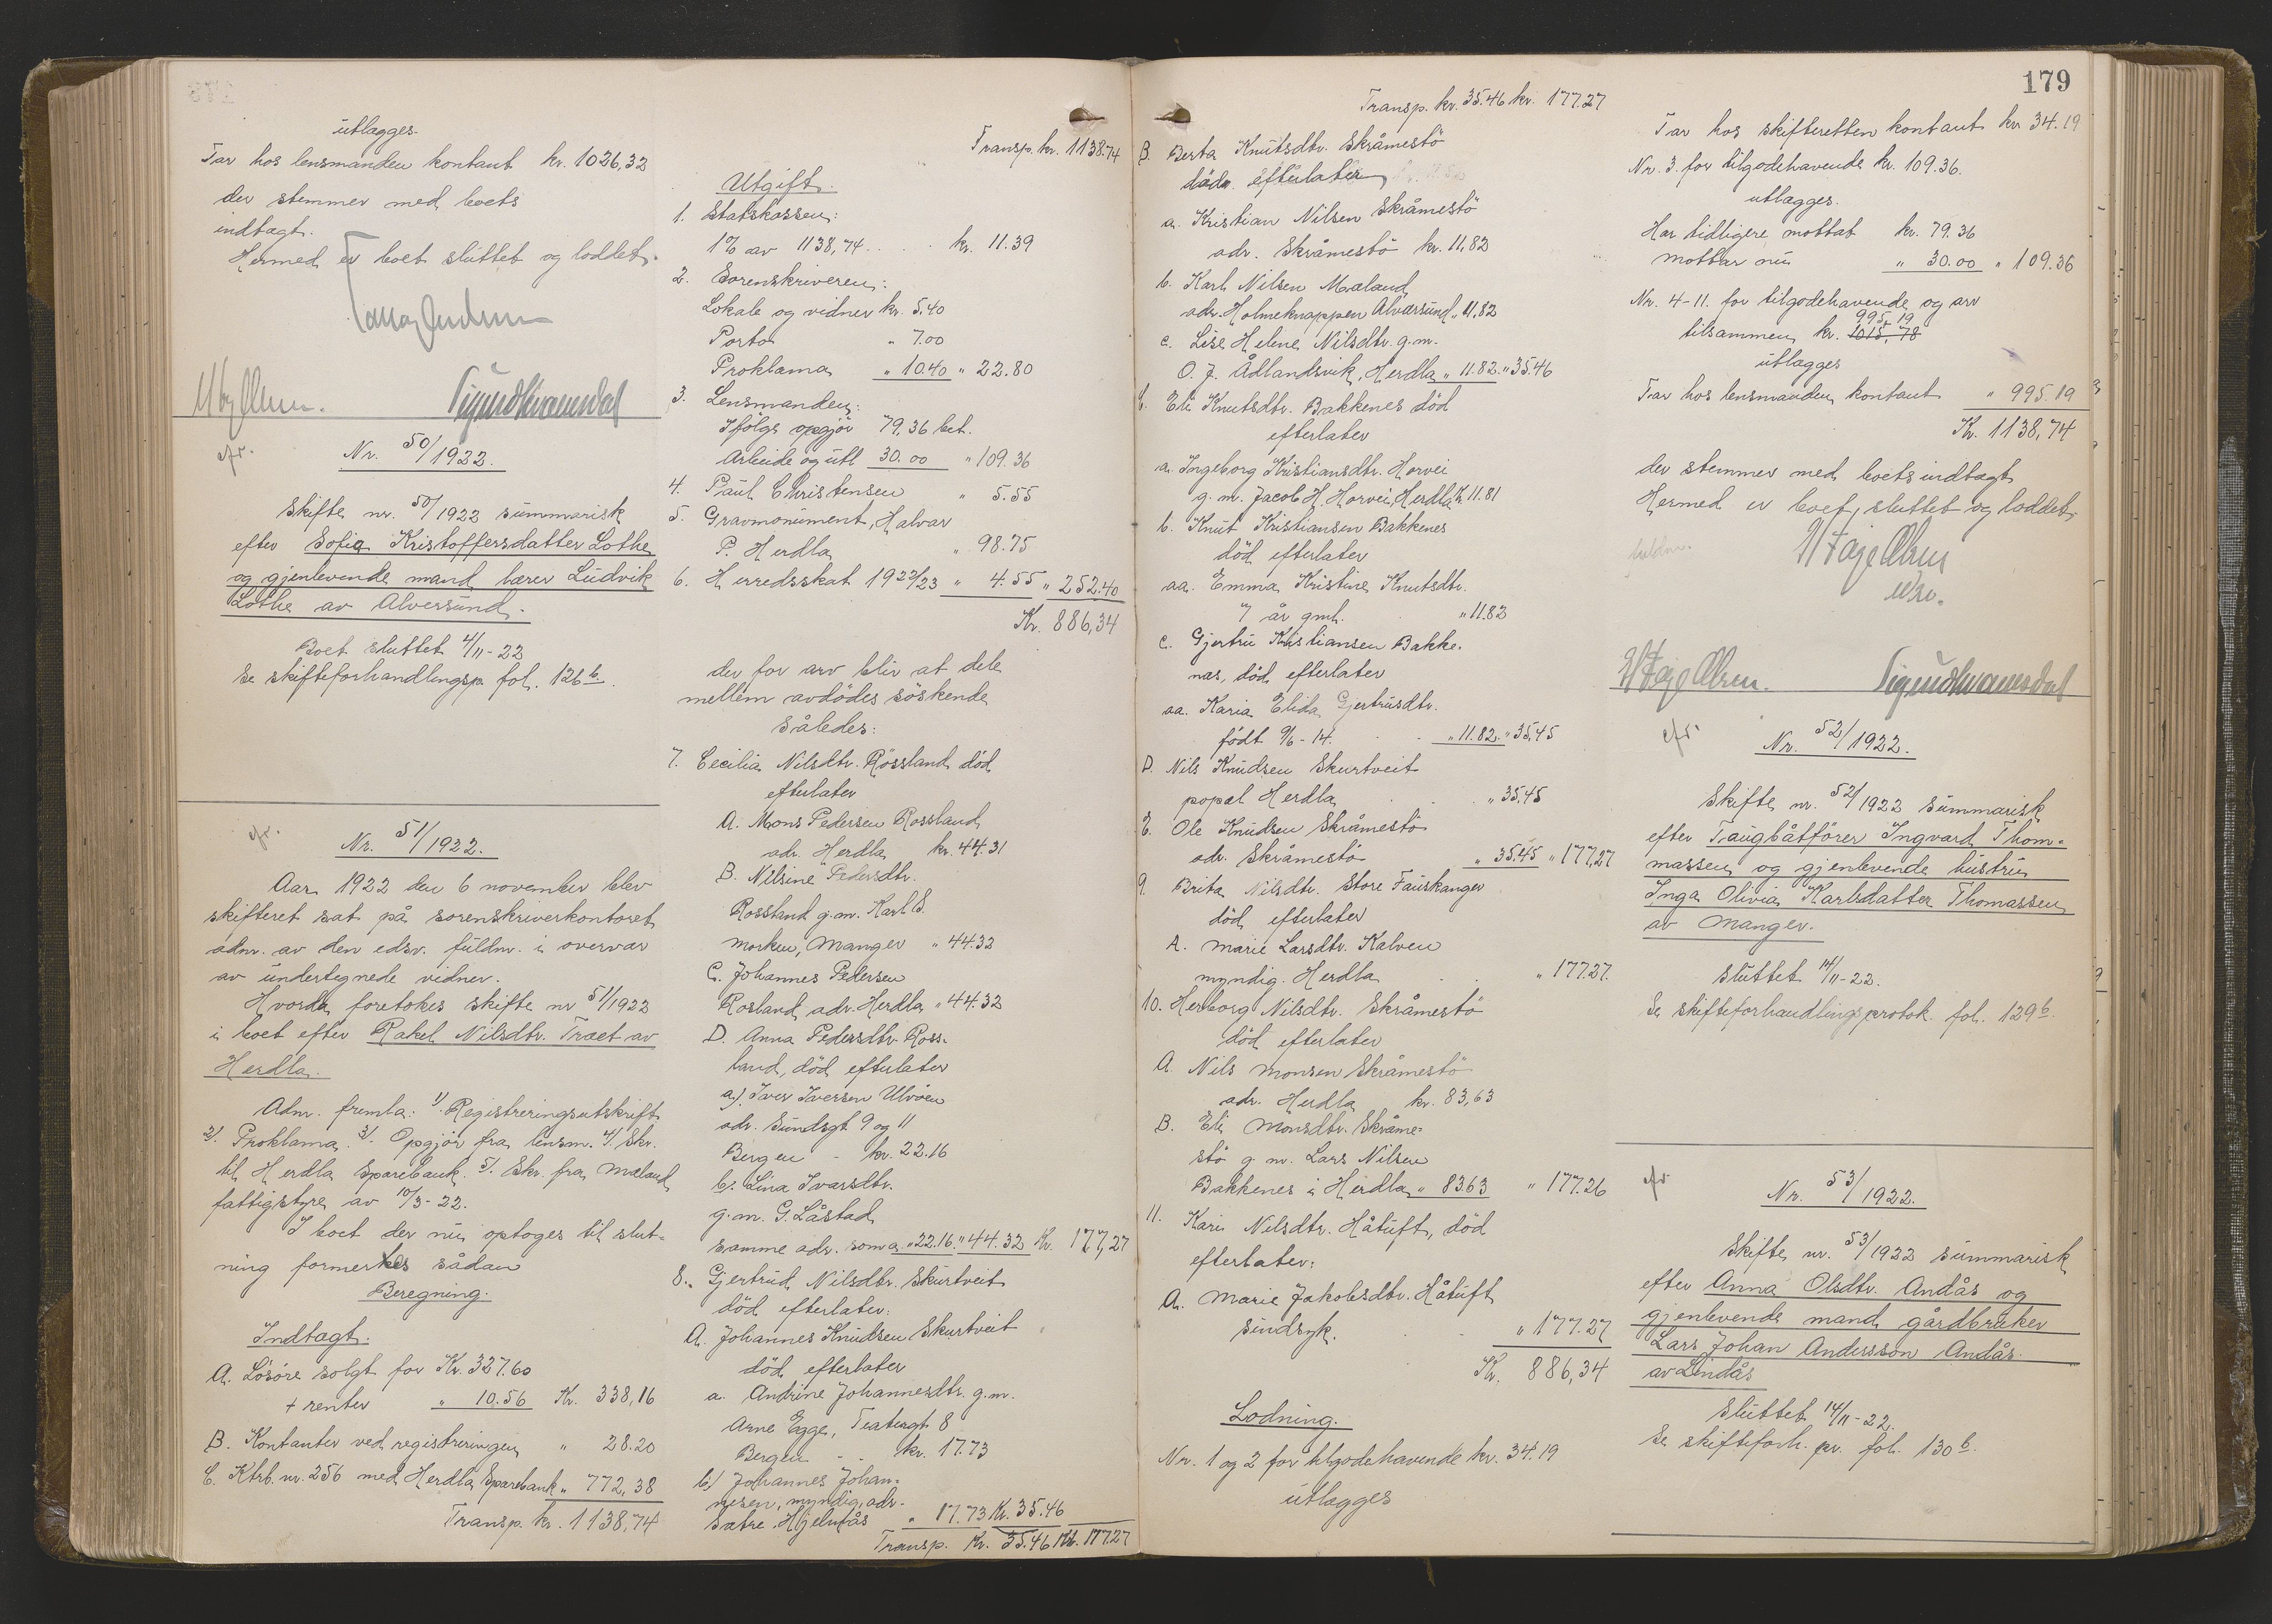 utlægges.
Tar hos lensmanden kontant kr. 1026,32
der stemmer med boets
indtægt.
Hermed er boet sluttet og loddet.
Sigurd Kvamsdal
efr.
Nr. 50/1922.
Skifte nr. 50/1922 summarisk
efter Sofie Kristoffersdatter Lothe
og gjenlevende mand lærer Ludvik
Lothe av Alversund.
Boet sluttet 4/11-22
Se skifteforhandlingsp. fol. 126 b.
efr.
Nr. 51/1922.
Aar 1922 den 6 november blev
skifteret sat på sorenskriverkontoret
adm. av den edsv. fuldm. i overvær
av undertegnede vidner.
Hvorda foretokes skifte nr 51/1922
i boet efter Rakel Nilsdtr. Træet av
Herdla.
Adm. fremla: 1/. Registreringsutskrift
2/. Proklama. 3/. Opgjör fra lensm. 4/. Skr.
til Herdla Sparebank. 5/. Skr. fra Mæland
fattigstyre av 10/3-22.
I boet der nu optoges til slut-
ning formerkes sådan
Beregning.
Indtægt.
A. Lösöre solgt for Kr. 327.60
+ renter " 10.56 Kr. 338,16
B. Kontanter ved registreringen " 28.20
C. Ktrb. nr. 256 med Herdla Sparebank " 772,38
Transp. kr. 1138,74
Transp. kr. 1138.74
Utgift.
1. Statskassen:
1% av 1138,74 . . . . kr. 11.39
2. Sorenskriveren:
Lokale og vidner kr. 5.40
Porto " 7.00
Proklama " 10.40 " 22.80
3. Lensmanden:
Ifölge opgjör 79,36 bet.
Arbeide og utl 30.00 " 109.36
4. Paul Christensen " 5.55
5. Gravmonument, Halvar
P. Herdla " 98.75
6. Herredsskat 1922/23 " 4.55 " 252.40
Kr. 886,34
der for arv blir at dele
mellem avdödes söskende
således:
7. Cecilia Nilsdtr. Rössland död
efterlater
A. Mons Pedersen Rossland
adr. Herdla kr. 44.31
B. Nilsine Pedersdtr.
Rossland g.m. Karl S.
Morken, Manger " 44.32
C. Johannes Pedersen
Rosland adr. Herdla " 44.32
D. Anna Pedersdtr. Ross-
land, död efterlater
a). Iver Iversen Ulvöen
adr. Sundsgt 9 og 11
Bergen - kr. 22.16
b). Lina Ivarsdtr.
g.m. G. Låstad
samme adr. som a. " 22.16. " 44.32 Kr. 177,27
8. Gjertrud Nilsdtr. Skurtveit
död efterlater:
A. Johannes Knudsen Skurtveit
död efterlater
a. Andrine Johannesdtr. g.m.
Arne Egge, Teatergt 8
Bergen - - kr. 17.73
b) Johannes Johan-
nesen, myndig, adr.
Sætre, Hjelmås " 17.73 Kr. 35.46
Transp. Kr. 35.46 Kr. 177.27
Transp. kr. 35.46 kr. 177.27
B. Berta Knutsdtr. Skråmestö
död. efterlater
a. Kristian Nilsen Skråmestö
adr. Skråmestö kr. 11.82
b. Karl Nilsen Mæland
adr. Holmeknappen Alversund " 11.82
c. Lise Helene Nilsdtr. g.m.
O. J. Ådlandsvik, Herdla " 11.82 " 35.46
C. Eli Knutsdtr. Bakkenes död
efterlater
a. Ingeborg Kristiansdtr. Horvei
g.m. Jacob H. Horvei, Herdla K 11.81
b. Knut Kristiansen Bakkenes
död efterlater
aa. Emma Kristine Knutsdtr.
7 år gml. " 11.82
c. Gjertru Kristiansen Bakke-
nas, död efterlater
aa. Karia Elida Gjertrusdtr.
födt 9/6-14. " 11.82 " 35.45
D. Nils Knudsen Skurtveit
popal Herdla " 35.45
E. Ole Knudsen Skråmestö
adr. Skråmestö " 35.45 " 177,27
9. Brita Nilsdtr. Store Fauskanger
död efterlater
A. Marie Larsdtr. Kalven
myndig. Herdla " 177.27.
10. Herborg Nilsdtr. Skråmestö
död efterlater
A. Nils Monsen Skråmestö
adr. Herdla kr. 83,63
B. Eli Monsdtr. Skråme-
stö g.m. Lars Nilsen
Bakkenes i Herdla " 83.63 " 177.26
11. Kari Nilsdtr. Håtuft, död
efterlater:
A. Marie Jakobsdtr. Håtuft
sindsyk. " 177.27
Kr. 886,34
Lodning.
Nr. 1 og 2 for tilgodehavende kr. 34.19
utlægges
179
Tar hos skifteretten kontant kr 34.19
Nr. 3 for tilgodehavende kr. 109.36.
utlægges.
Har tidligere mottat kr. 79.36
Mottar nu " 30.00 " 109.36
Nr. 4-11. for tilgodehavende og arv
995,19
tilsammen kr. 1015,78
utlægges
Tar hos lensmanden kontant " 995.19
Kr. 1138,74
der stemmer med boets indtægt
Hermed er boet sluttet og loddet.
Sigurd Kvamsdal
efr.
Nr. 52/1922.
Skifte nr. 52/1922 summarisk
efter Taugbåtförer Ingvard Thom-
massen og gjenlevende hustru
Inga Olivia Karlsdatter Thomassen
av Manger.
Sluttet 14/11-22.
Se skifteforhandlingsprotok. fol. 129 b.
efr
Nr. 53/1922.
Skifte nr. 53/1922 summarisk
efter Anna Olsdtr. Andås og
gjenlevende mand gårdbruker
Lars Johan Anderson Andås
av Lindås
Sluttet 14/11-22.
Se skifteforh. pr. fol. 130 b.